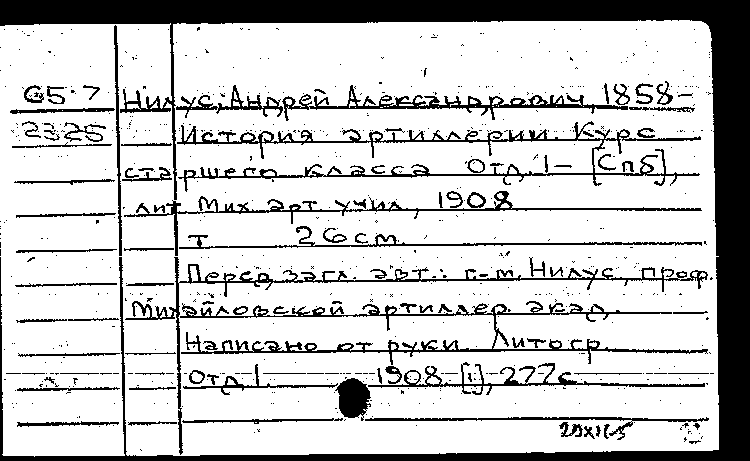 65.7 Нилус, Андрей Александрович, 1858-
2325 История артиллерии. Курс
старшего класса Отд. 1- [Спб],
лит. Мих. арт. учил., 1908
т 26см.
Перед загл. авт.: г.-м. Нилус, проф.
Михайловской артиллер. акад.
Написано от руки. Литогр.
Отд. 1. 1908. [1], 277с.